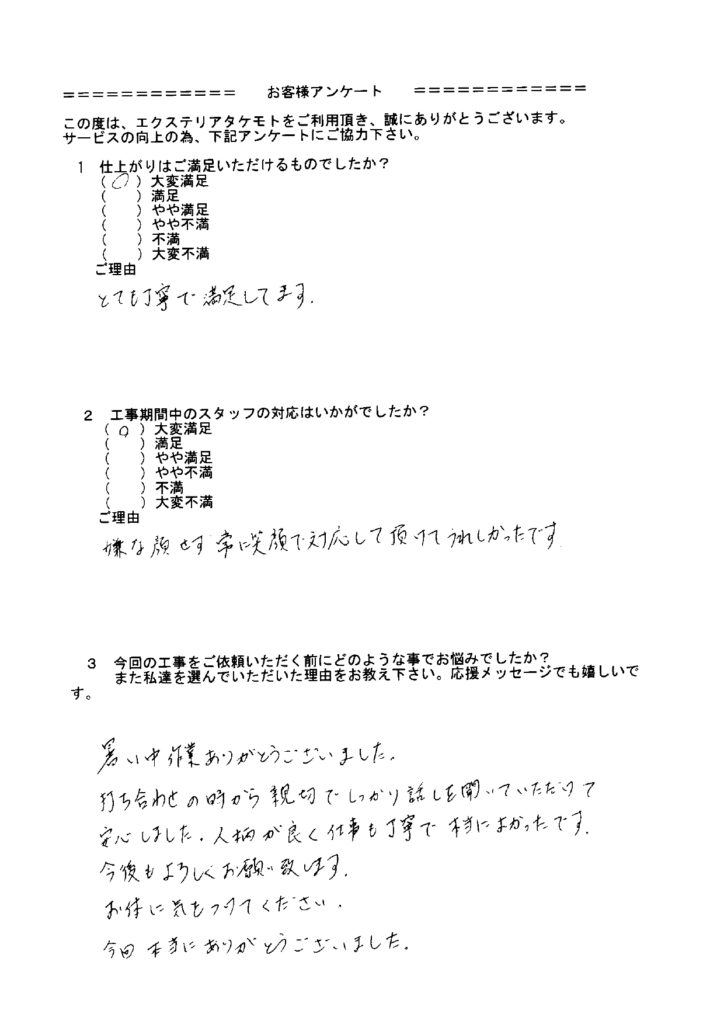 ============ お客様アンケート ============
この度は、エクステリアタケモトをご利用頂き、誠にありがとうございます。
サービスの向上の為、下記アンケートにご協力下さい。
1 仕上がりはご満足いただけるものでしたか？
(○)大変満足
( )満足
( )やや満足
( )やや不満
( )不満
( )大変不満
ご理由
とても丁寧で満足してます.
2 工事期間中のスタッフの対応はいかがでしたか？
(○)大変満足
( )満足
( )やや満足
( )やや不満
( )不満
( )大変不満
ご理由
嫌な顔せず常に笑顔で対応して頂けてうれしかったです
3 今回の工事をご依頼いただく前にどのような事でお悩みでしたか？
また私達を選んでいただいた理由をお教え下さい。応援メッセージでも嬉しいで
す。
暑い中作業ありがとうございました.
打ち合わせの時から親切でしっかり話しを聞いていただけて
安心しました.人柄が良く仕事も丁寧で本当によかったです.
今後もよろしくお願い致します.
お体に気をつけてください.
今回本当にありがとうございました.